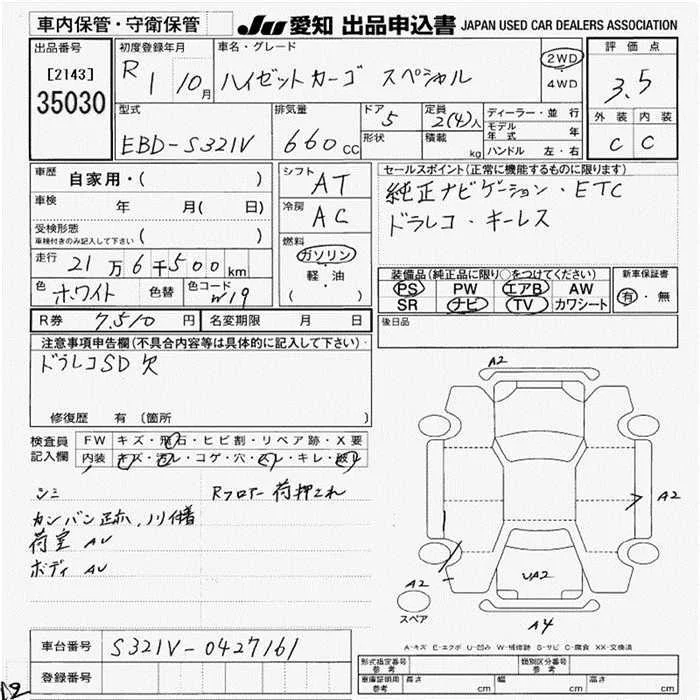 車内保管・守衛保管 JU 愛知 出品申込書 JAPAN USED CAR DEALERS ASSOCIATION
出品番号 初度登録年月 車名・グレード 評価点
[2143] R 1 10月 ハイゼットカーゴ スペシャル 2WD 3.5
35030 4WD
型式 排気量 ドア 5 定員 2(4)人 ディーラー・並行 外装 内装
EBD-S321V 660cc 形状 積載 kg モデル年式 年 C C
ハンドル 左・右
車歴 自家用・( ) シフト AT セールスポイント(正常に機能するものに限ります)
車検 年 月( 日) 冷房 AC 純正ナビゲーション・ETC
受検形態 ( ) ドラレコ・キーレス
車検付きのみ記入して下さい
走行 21万6千500km 燃料 ガソリン 装備品(純正品に限り○をつけてください) 新車保証書
色 ホワイト 色替 色コード W19 軽・油 PS PW エアB AW 有・無
( ) SR ナビ TV カワシート
R券 7,510円 名変期限 月 日 後日品
注意事項申告欄(不具合内容等は具体的に記入して下さい)
ドラレコSD欠
修復歴 有 (箇所
検査員 FW キズ・飛石・ヒビ割・リペア跡・X要
記入欄 内装 キズ・汚レ・コゲ・穴・スレ・キレ・破レ
シミ Rフロアー荷押され
カンバン正亦、ノリ付着
荷室 AU
ボディ AU
A2
A2
A2
UA2
スペア
A4
A-キズ E-エクボ U-凹み W-補修跡 S-サビ C-腐食 XX-交換済
車台番号 S321V-0427161
登録番号
形式指定番号 参考 類別区分番号 参考
車庫証明用 参考 長さ cm 幅 cm 高さ cm